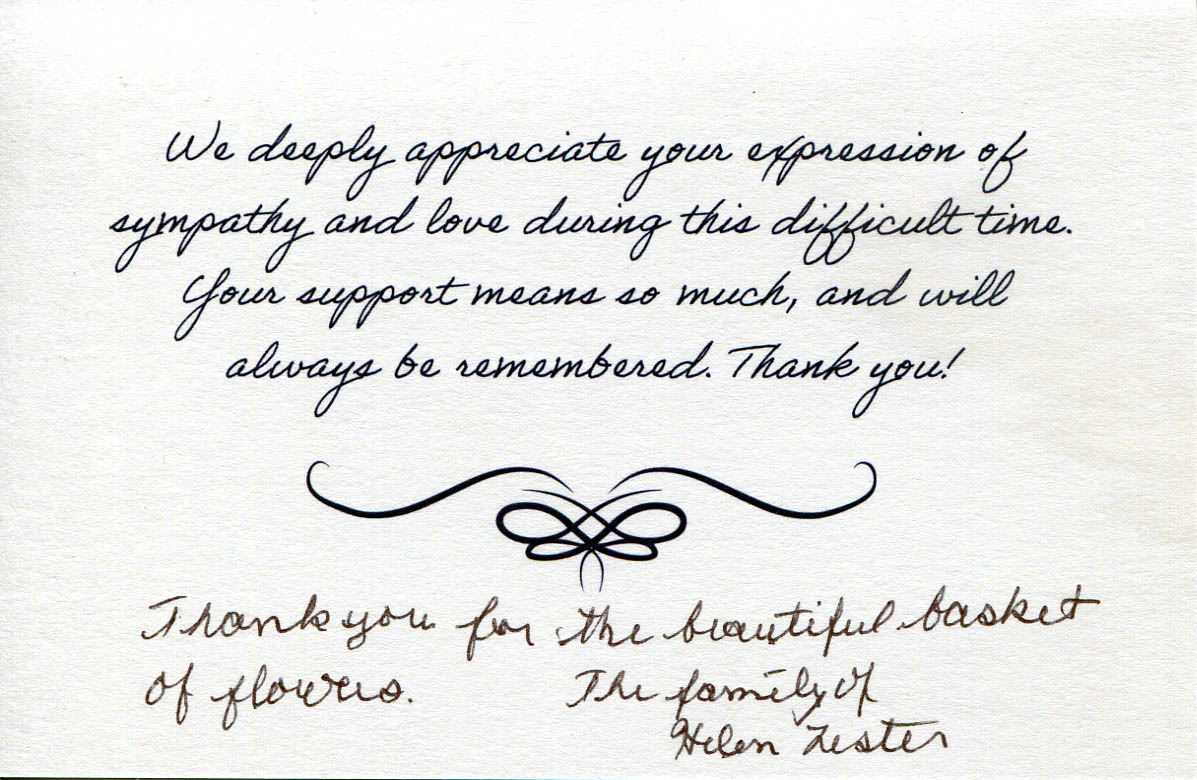 We deeply appreciate your expression of
sympathy and love during this difficult time.
Your support means so much, and will
always be remembered. Thank you!
Thank you for the beautiful basket
of flowers. The family of
Helen Lester